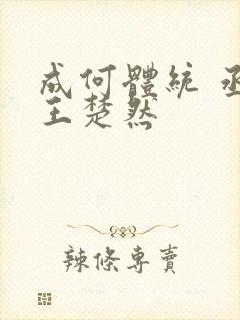 成何體統 丞
王楚然
辣條專賣